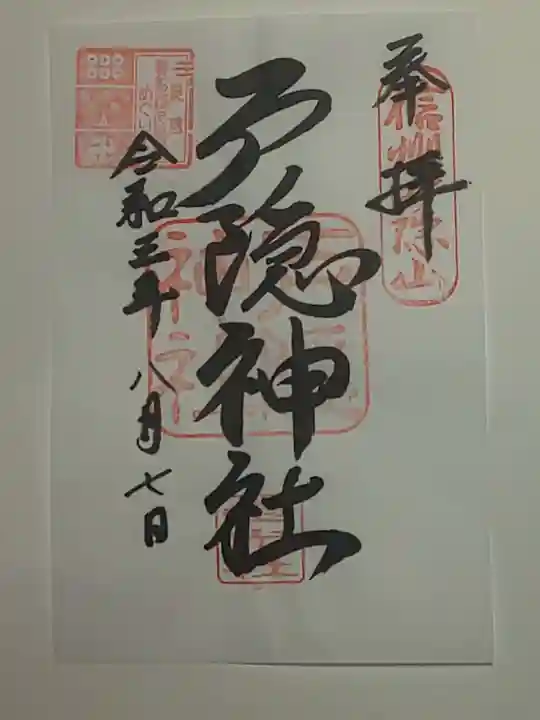 奉拝
信州
山
戸隠神社
令和三年八月七日
めぐり